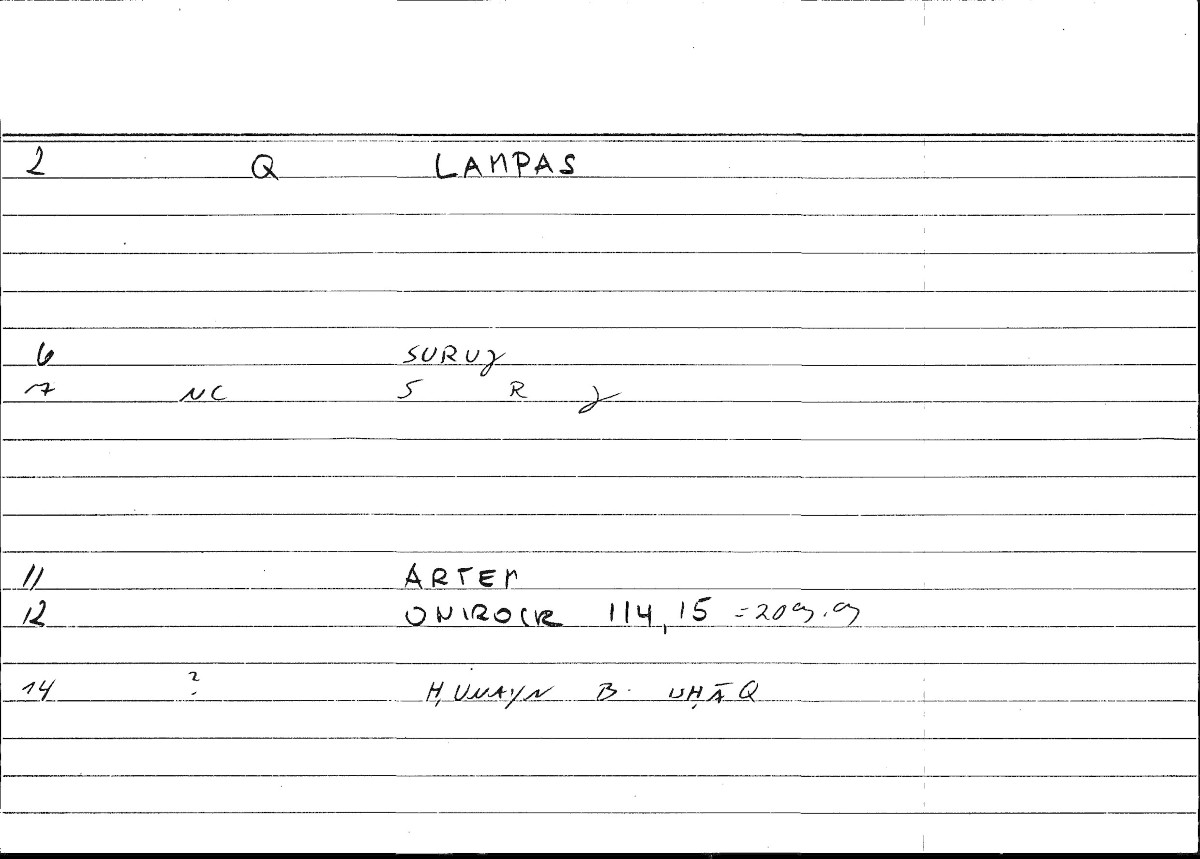 2 Q LAMPAS
6 SURUJ
7 NC S R J
11 ARTEM
12 ONIROCR 114,15 =209.9
14 ? ḤUNAYN B. ISḤĀQ